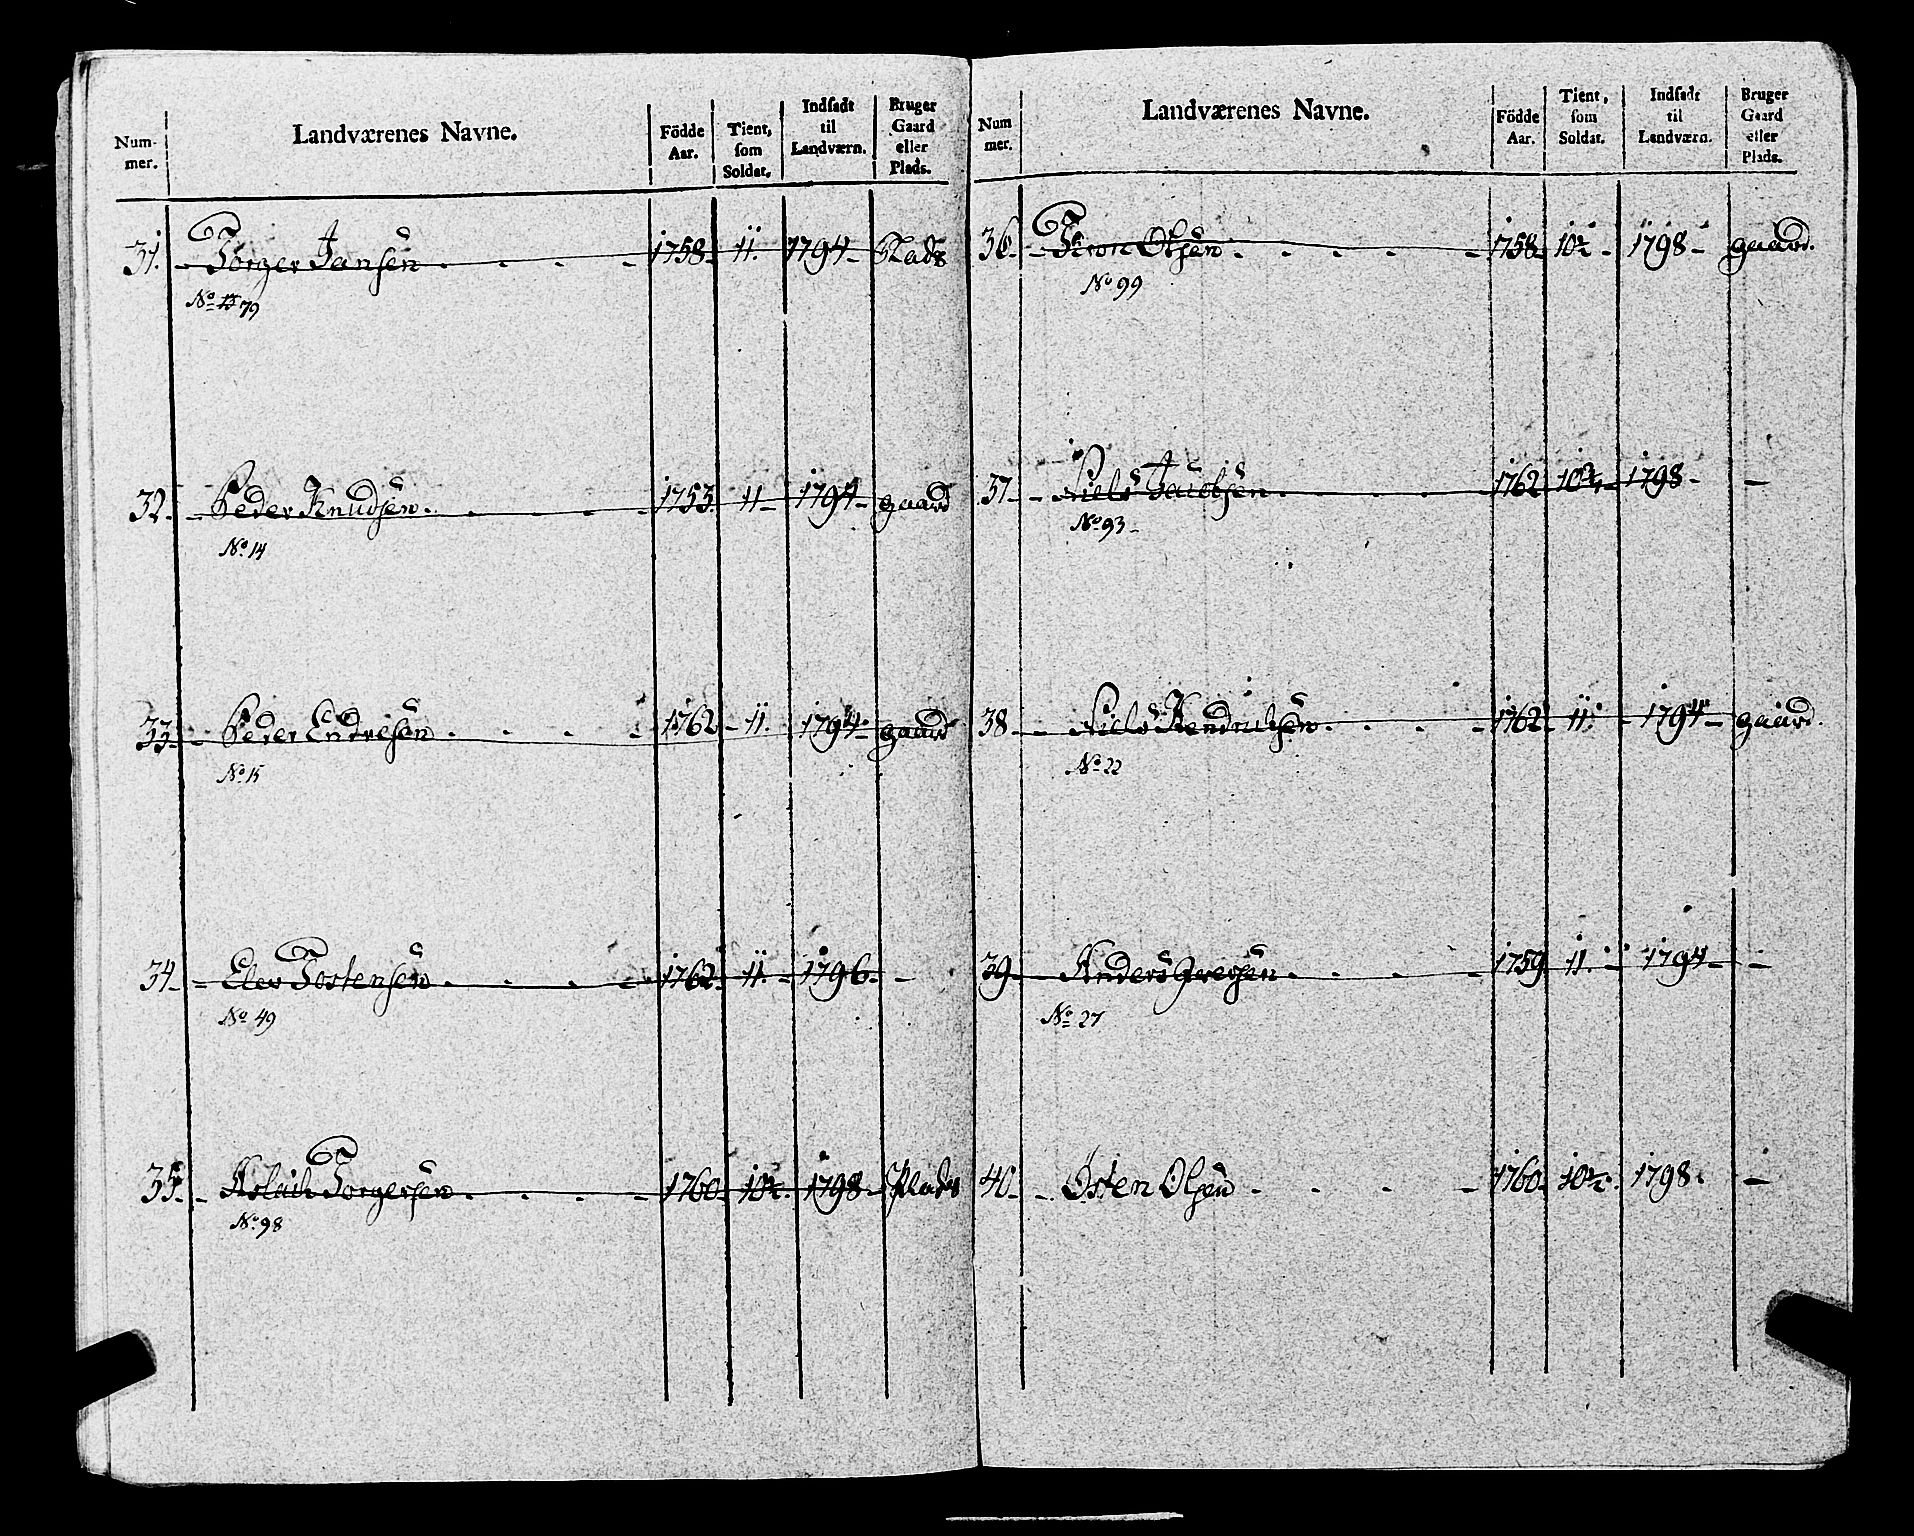 Num-
mer.
Landværenes Navne.
Födde
Aar.
Tient,
som
Soldat.
Indsadt
til
Landværn.
Bruger
Gaard
eller
Plads.
31. Torger Jansen 1758 11. 1794 Plads
No 79
32. Peder Knudsen 1753 11 1794 gaard
No 14
33 Peder Endresen 1762 11. 1794 gaard
No 15
34 Elev Tostensen 1762 11. 1796 -
No 49
35 Aslach Torgersen 1760 10½ 1798 Plads
No 98
Num
mer.
Landværenes Navne.
Födde
Aar.
Tient,
som
Soldat.
Indsadt
til
Landværn.
Bruger
Gaard
eller
Plads.
36 Olsen 1758 10½ 1798 gaard.
No 99
37 Niels Jacobsen 1762 1798 -
No 93
38 Niels Hendrichsen 1762 11 1794 gaard.
No 22
39 Anders Iversen 1759 11. 1794 -
No 27
40 Østen Olsen 1760 10½ 1798 -